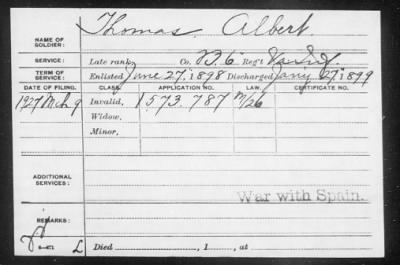 NAME OF SOLDIER: Thomas Albert.
SERVICE: Late rank, Co. B. 6 Reg't Va. Inf.
TERM OF SERVICE: Enlisted June 27, 1898 Discharged Jany 27, 1899
DATE OF FILING. CLASS. APPLICATION NO. LAW. CERTIFICATE NO.
1927 Mch 9 Invalid, 1573.787 M/26
Widow.
Minor.
ADDITIONAL SERVICES:
War with Spain.
REMARKS:
L Died , 1 , at